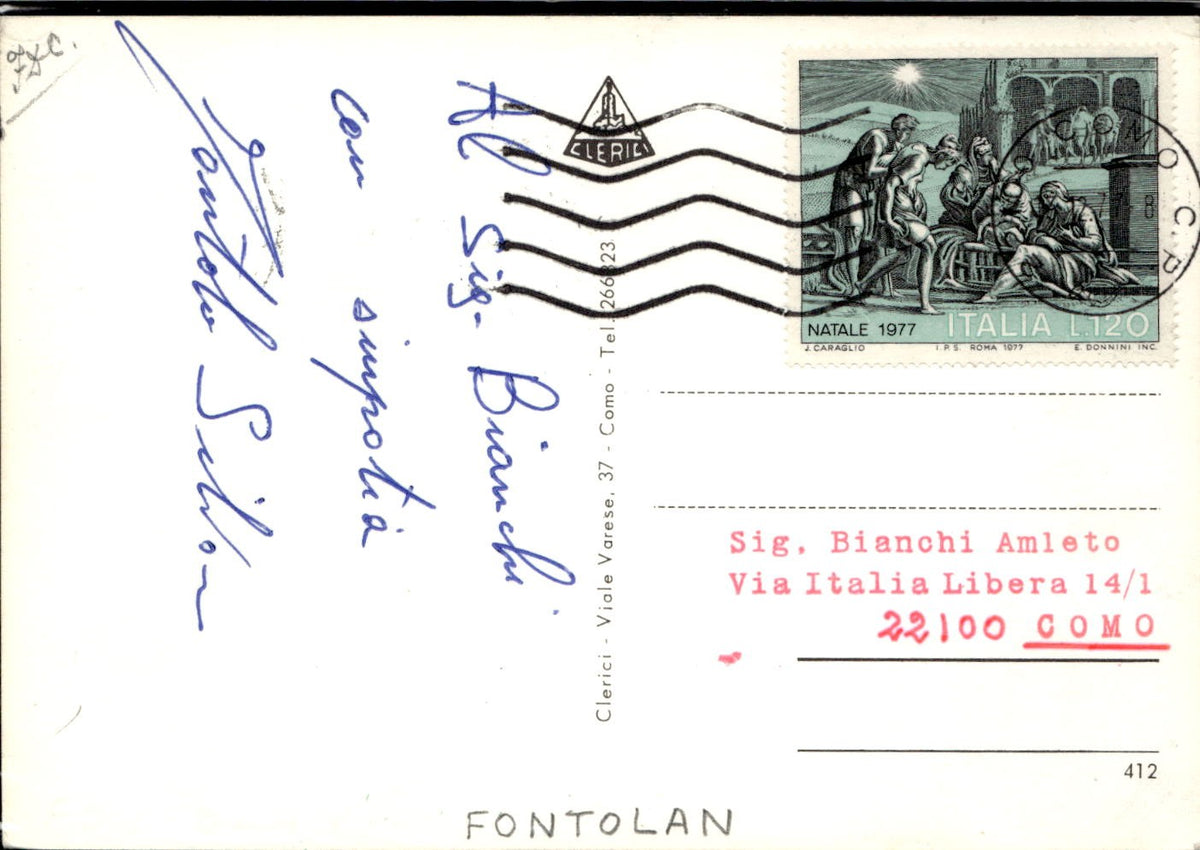 Al Sig. Bianchi
con simpatia
Fontolan Silvan
CLERICI
Clerici - Viale Varese, 37 - Como - Tel. 266323
COMO C.P.
NATALE 1977 ITALIA L.120
J. CARAGLIO I.P.S. ROMA 1977 E. DONNINI INC.
Sig. Bianchi Amleto
Via Italia Libera 14/1
22100 COMO
412
FONTOLAN